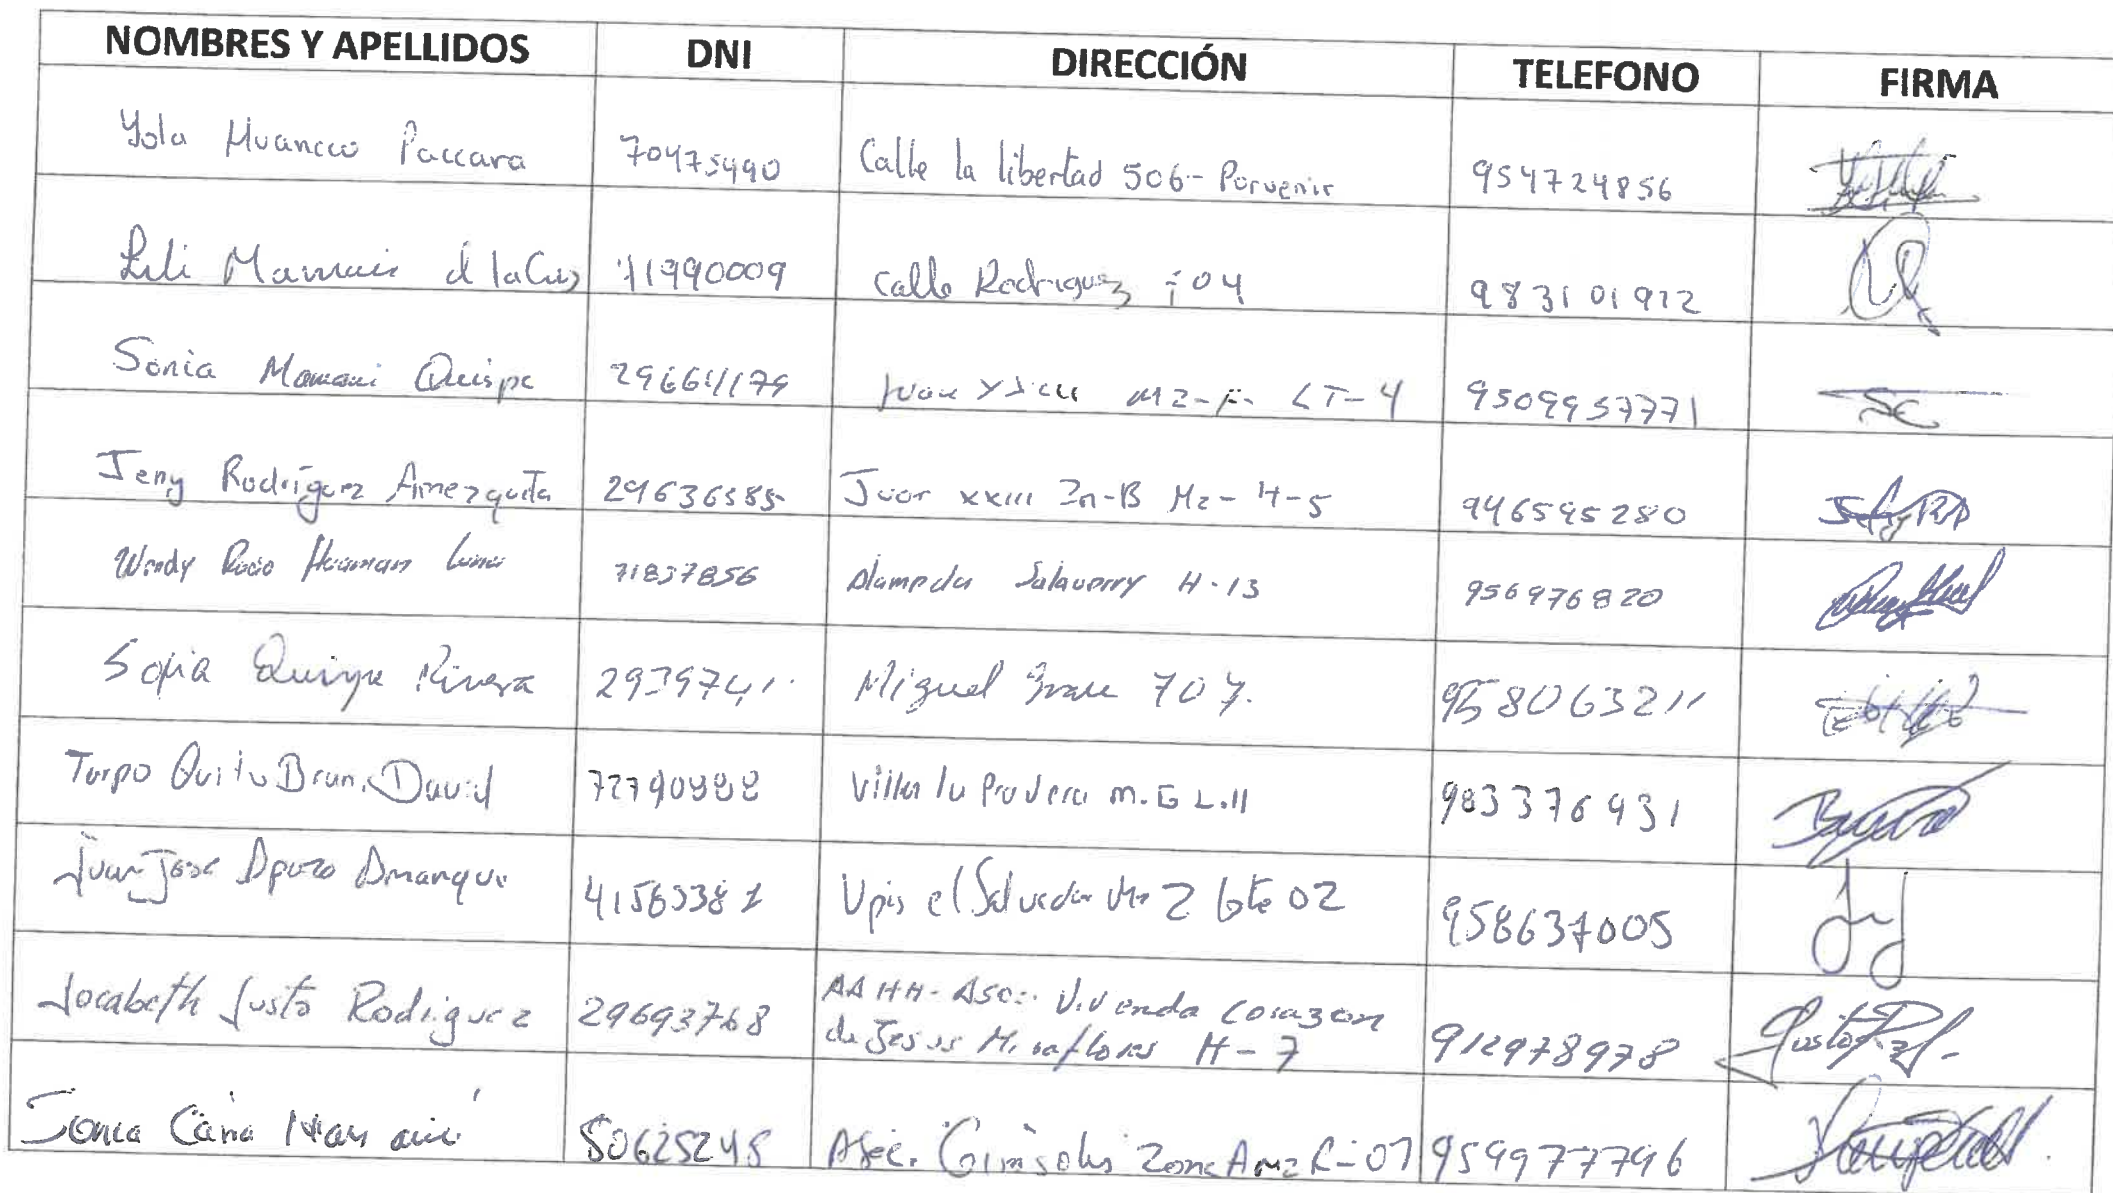 NOMBRES Y APELLIDOS DNI DIRECCIÓN TELEFONO FIRMA
Yola Huancco Paccara 70475490 Calle la libertad 506- Porvenir 954724856
Lili Mamani d la Cruz 71990009 Calle Rodriguez 983101912
Sonia Mamani Quispe 29664179 Juan MZ-F- LT-4 950995777
Jeny Rodríguez Amezquita 29636585 Juan XXIII Zn-B Mz- H-5 946595280
Wendy Rocio Huaman Luna 71837856 Alameda Salaverry H-13 956976820
Sofia Quispe Rivera 2939741 Miguel Grau 707. 958063211
Turpo Quito Bruno David 72790888 Villa la Pradera M.G L.11 983376931
Juan Jose Apaza Amanque 41563381 Upis el Salvador Mz 2 lote 02 958637005
Jocabeth Justo Rodriguez 29693768 AA HH- Asoc. Vivienda Corazon
de Jesus Miraflores H-7 912978978
Sonia Cana Mamani 80625245 Asoc. Girasoles Zona A Mz R-07 959977796